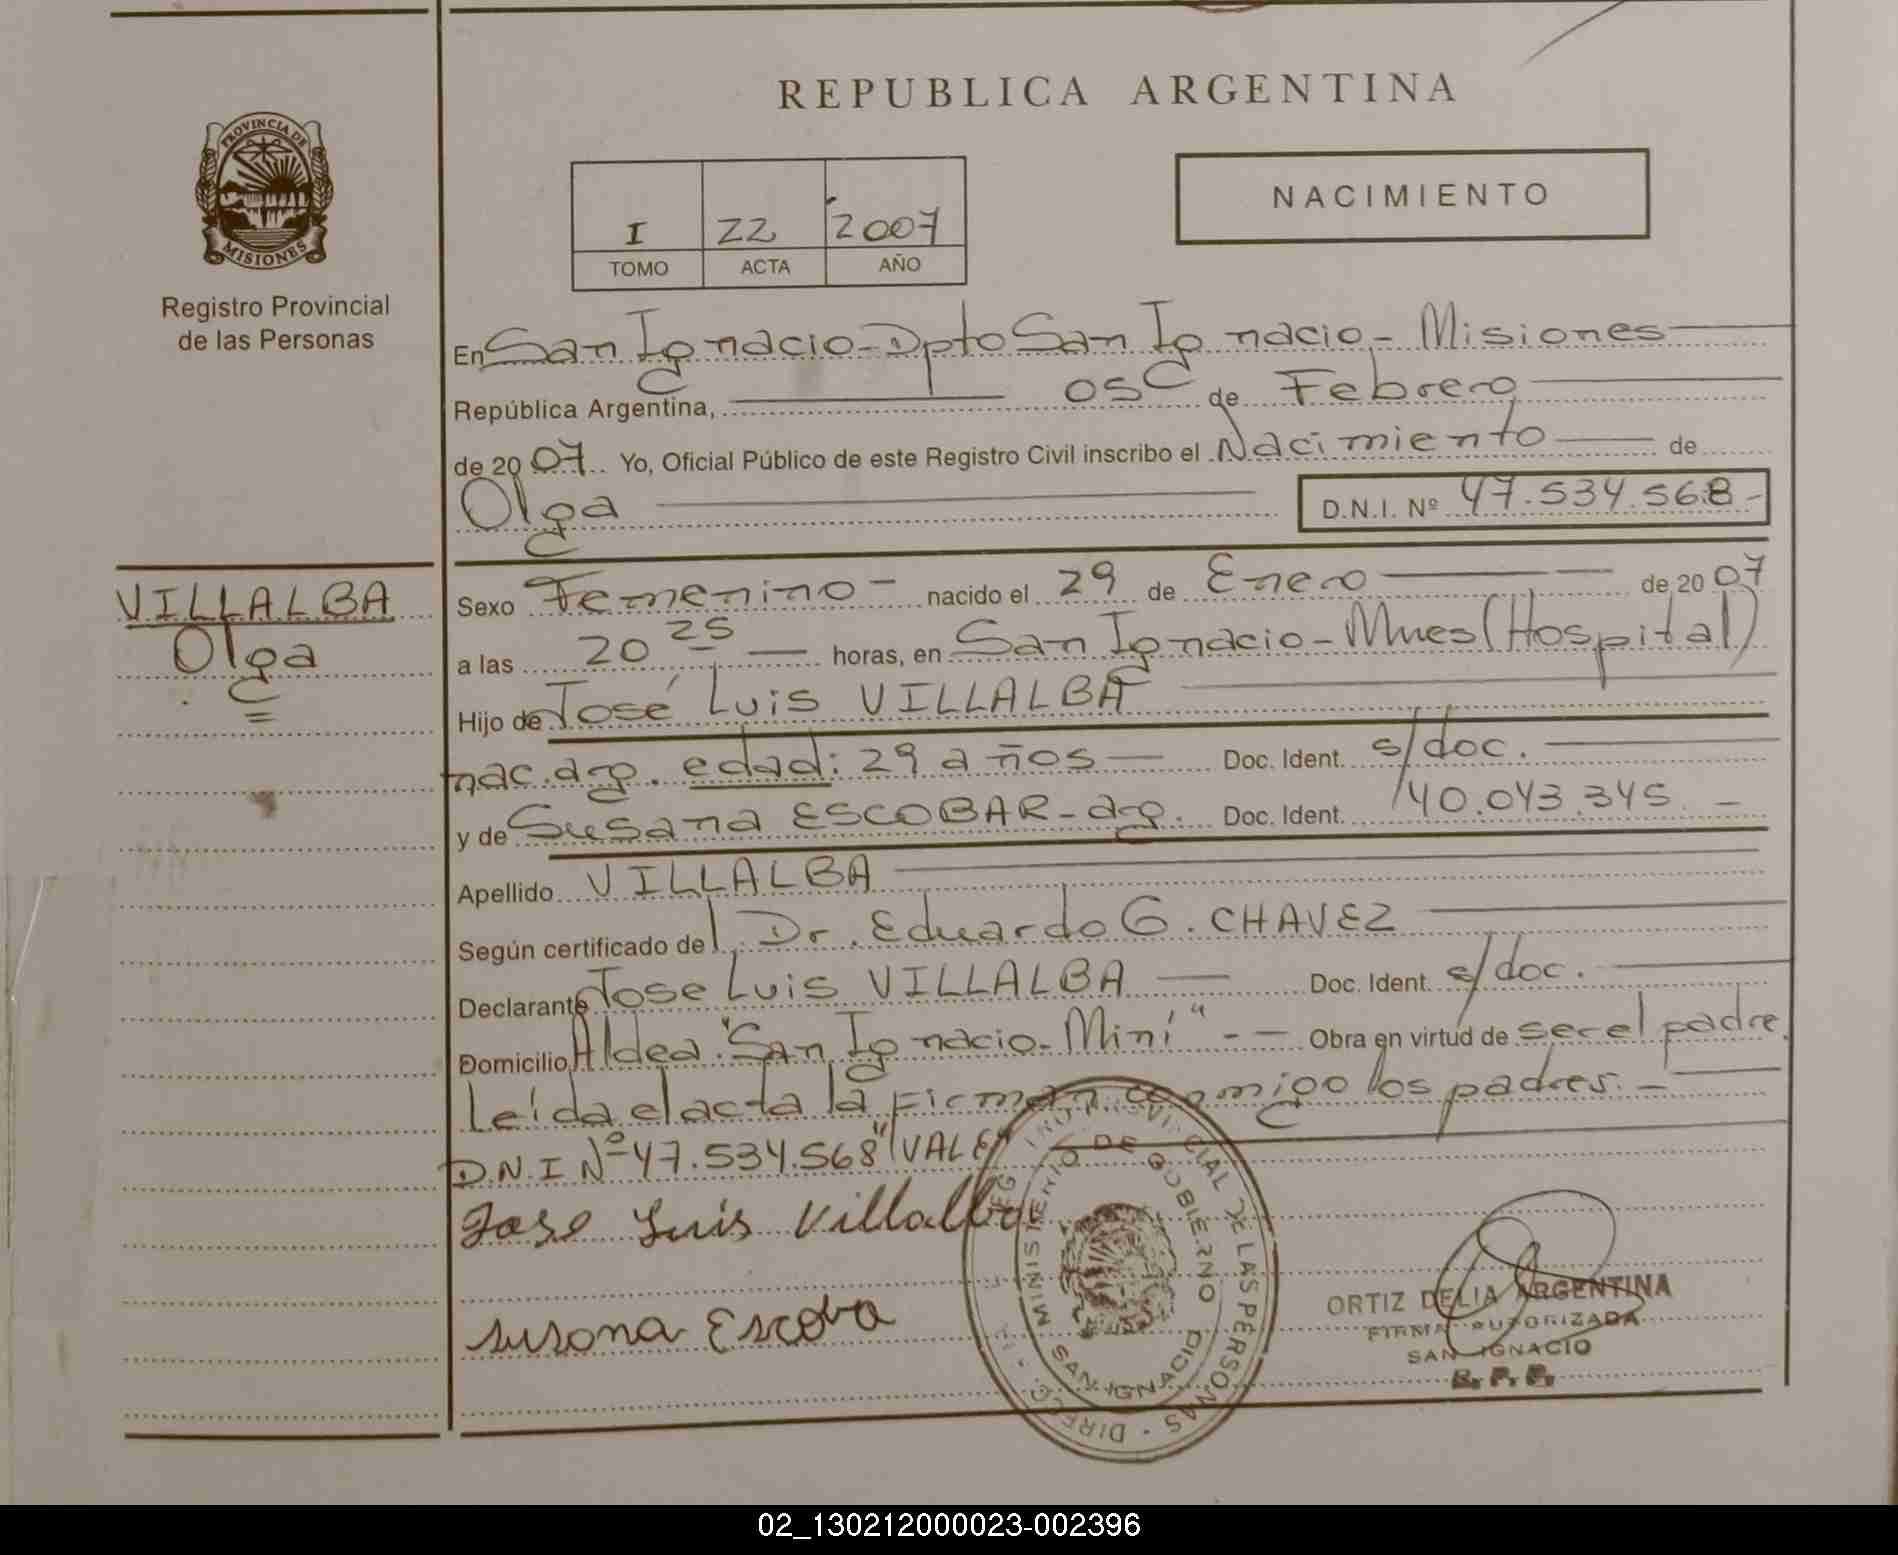 REPUBLICA ARGENTINA
PROVINCIA DE
MISIONES
Registro Provincial
de las Personas
I 22 2007
TOMO ACTA AÑO
NACIMIENTO
En San Ignacio - Dpto San Ignacio - Misiones
República Argentina, 05 de Febrero
de 2007 Yo, Oficial Público de este Registro Civil inscribo el Nacimiento de
Olga D.N.I. Nº 47.534.568-
VILLALBA
Olga
Sexo Femenino - nacido el 29 de Enero de 2007
a las 20 25 horas, en San Ignacio - Mnes (Hospital)
Hijo de José Luis VILLALBA
nac. arg. edad: 29 años Doc. Ident. s/doc.
y de Susana ESCOBAR - arg. Doc. Ident. 40.043.345. -
Apellido VILLALBA
Según certificado del Dr. Eduardo G. CHAVEZ
Declarante Jose Luis VILLALBA Doc. Ident. s/doc.
Domicilio Aldea "San Ignacio - Miní" - Obra en virtud de ser el padre.
Leída el acta la Firman conmigo los padres. -
D.N.I Nº 47.534.568" (VALE)
Jose Luis Villalba
Susona Escova
MINISTERIO DE GOBIERNO
SAN IGNACIO
DE LAS PERSONAS
ORTIZ DELIA ARGENTINA
FIRMA AUTORIZADA
SAN IGNACIO
02_130212000023-002396